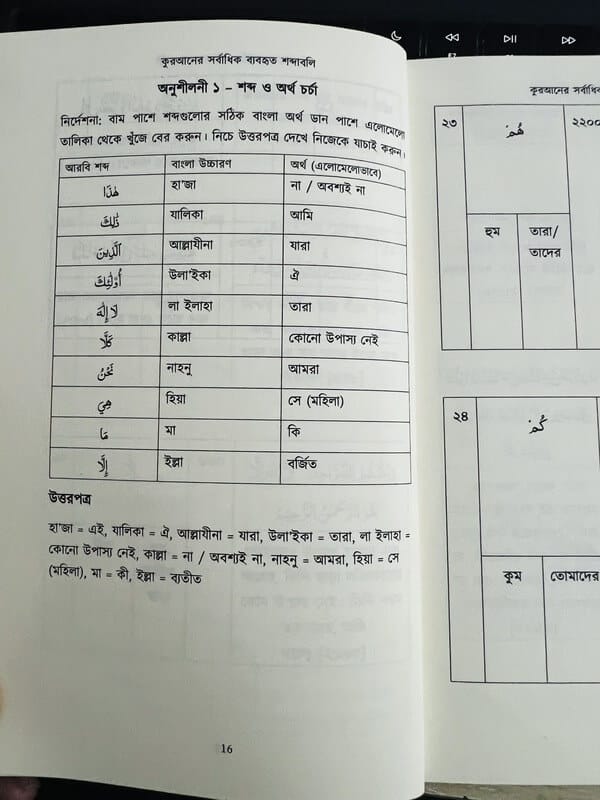 কুরআনের সর্বাধিক ব্যবহৃত শব্দাবলি
অনুশীলনী ১ – শব্দ ও অর্থ চর্চা
নির্দেশনা: বাম পাশে শব্দগুলোর সঠিক বাংলা অর্থ ডান পাশে এলোমেলো
তালিকা থেকে খুঁজে বের করুন। নিচে উত্তরপত্র দেখে নিজেকে যাচাই করুন।
আরবি শব্দ বাংলা উচ্চারণ অর্থ (এলোমেলোভাবে)
هٰذَا হা'জা না / অবশ্যই না
ذٰلِكَ যালিকা আমি
الَّذِينَ আল্লাযীনা যারা
أُولٰئِكَ উলা'ইকা ঐ
لَا إِلٰهَ লা ইলাহা তারা
كَلَّا কাল্লা কোনো উপাস্য নেই
نَحْنُ নাহনু আমরা
هِيَ হিয়া সে (মহিলা)
مَا মা কি
إِلَّا ইল্লা বর্জিত
উত্তরপত্র
হা'জা = এই, যালিকা = ঐ, আল্লাযীনা = যারা, উলা'ইকা = তারা, লা ইলাহা =
কোনো উপাস্য নেই, কাল্লা = না / অবশ্যই না, নাহনু = আমরা, হিয়া = সে
(মহিলা), মা = কী, ইল্লা = ব্যতীত
16
কুরআনের সর্বাধিক
২৩ هُمْ ২২০০
হুম তারা/
তাদের
২৪ كُمْ
কুম তোমাদের